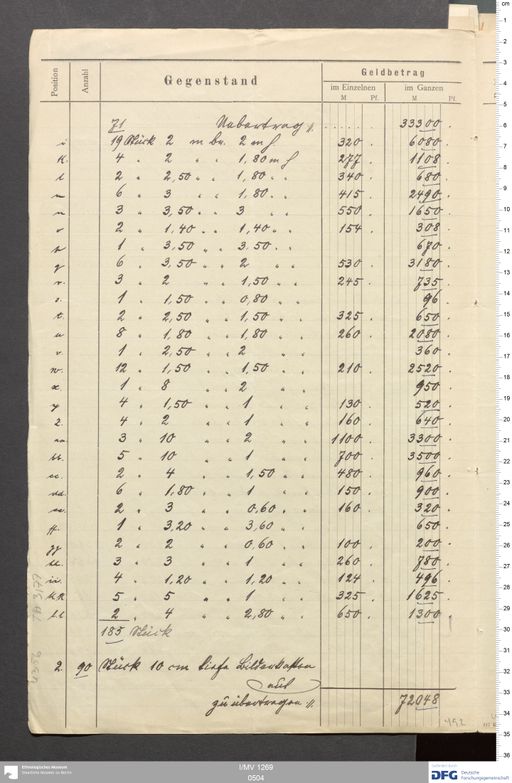 Position Anzahl Gegenstand Geldbetrag
im Einzelnen im Ganzen
M Pf. M Pf.
71 Uebertrag 33300 .
i 19 Stück 2 m br. 2 m h 320 . 6080 .
k 4 " 2 " " 1,80 m h 277 . 1108 .
l 2 " 2,50 " " 1,80 " " 340 . 680 .
m 6 " 3 " " 1,80 " " 415 . 2490 .
n 3 " 3,50 " " 3 " " 550 . 1650 .
o 2 " 1,40 " " 1,40 " " 154 . 308 .
p 1 " 3,50 " " 3,50 " " 670 .
q 6 " 3,50 " " 2 " " 530 . 3180 .
r. 3 " 2 " " 1,50 " " 245 . 735 .
s. 1 " 1,50 " " 0,80 " " 96 .
t. 2 " 2,50 " " 1,50 " " 325 . 650 .
u 8 " 1,80 " " 1,80 " " 260 . 2080 .
v. 1 " 2,50 " " 2 " " 360 .
w. 12 " 1,50 " " 1,50 " " 210 . 2520 .
x. 1 " 8 " " 2 " " 950 .
y 4 " 1,50 " " 1 " " 130 . 520 .
z. 4 " 2 " " 1 " " 160 . 640 .
aa 3 " 10 " " 2 " " 1100 . 3300 .
bb. 5 " 10 " " 1 " " 700 . 3500 .
cc. 2 " 4 " " 1,50 " " 480 . 960 .
dd. 6 " 1,80 " " 1 " " 150 . 900 .
ee. 2 " 3 " " 0,60 " " 160 . 320 .
ff. 1 " 3,20 " " 3,60 " " 650 .
gg 2 " 2 " " 0,60 " " 100 . 200 .
3 " 3 " " 1 " " 260 . 780 .
ii. 4 " 1,20 " " 1,20 " " 124 . 496 .
kk 5 " 5 " " 1 " " 325 . 1625 .
ll 2 " 4 " " 2,80 " " 650 . 1300 .
185 Stück
2 90 Stück 10 cm tiefe
zu übertragen 72048
I/MV 1269
0504
Ethnologisches Museum
Staatliche Museen zu Berlin
DFG
Deutsche
Forschungsgemeinschaft